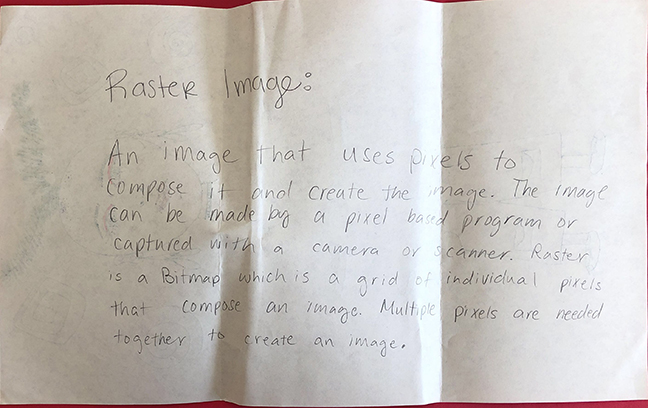 Raster Image:
An image that uses pixels to
compose it and create the image. The image
can be made by a pixel based program or
captured with a camera or scanner. Raster
is a Bitmap which is a grid of individual pixels
that compose an image. Multiple pixels are needed
together to create an image.